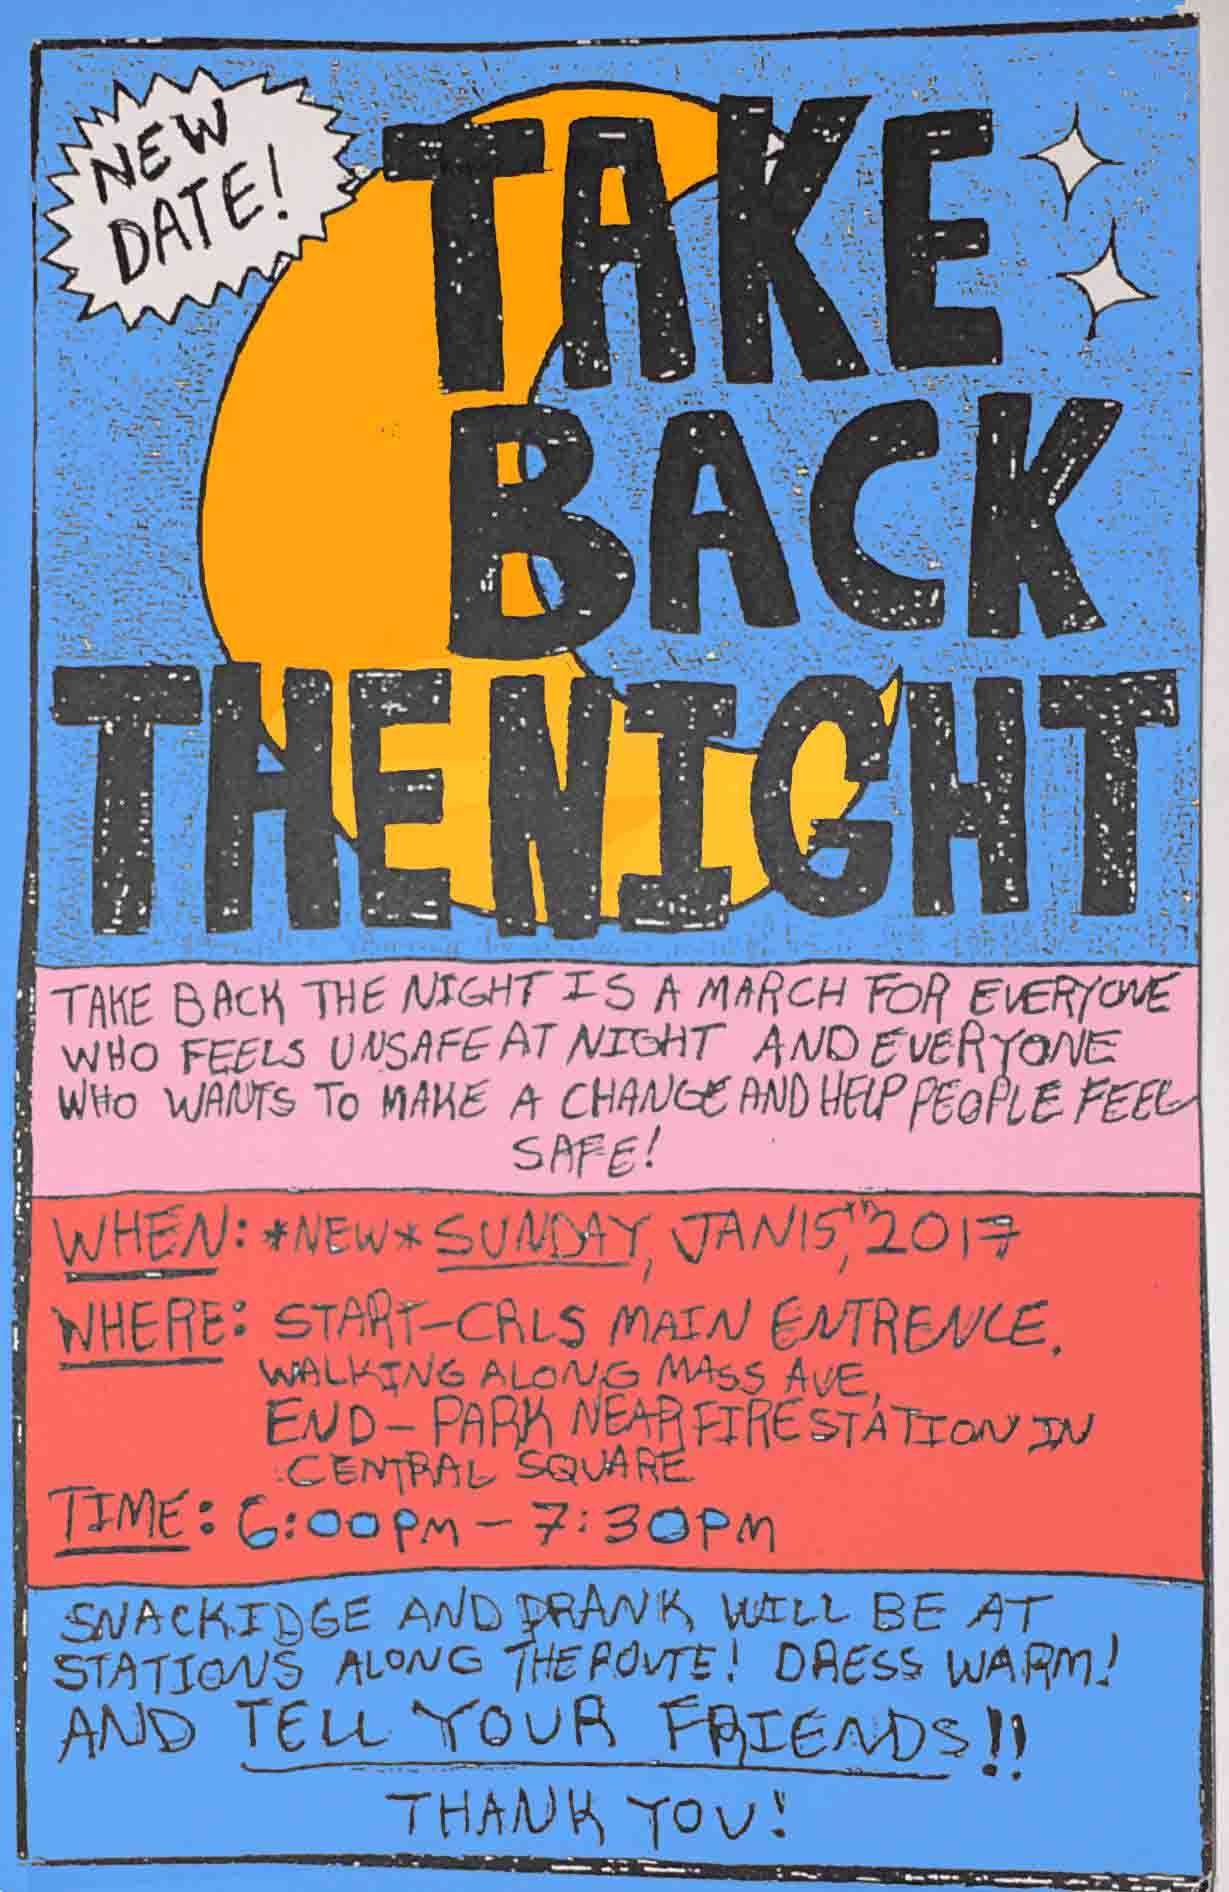 NEW
DATE!
TAKE
BACK
THE NIGHT
TAKE BACK THE NIGHT IS A MARCH FOR EVERYONE
WHO FEELS UNSAFE AT NIGHT AND EVERYONE
WHO WANTS TO MAKE A CHANGE AND HELP PEOPLE FEEL
SAFE!
WHEN: *NEW* SUNDAY, JAN 15th, 2017
WHERE: START-CRLS MAIN ENTRENCE.
WALKING ALONG MASS AVE,
END - PARK NEAR FIRE STATION IN
CENTRAL SQUARE
TIME: 6:00PM - 7:30PM
SNACKIDGE AND DRANK WILL BE AT
STATIONS ALONG THE ROUTE! DRESS WARM!
AND TELL YOUR FRIENDS!!
THANK YOU!